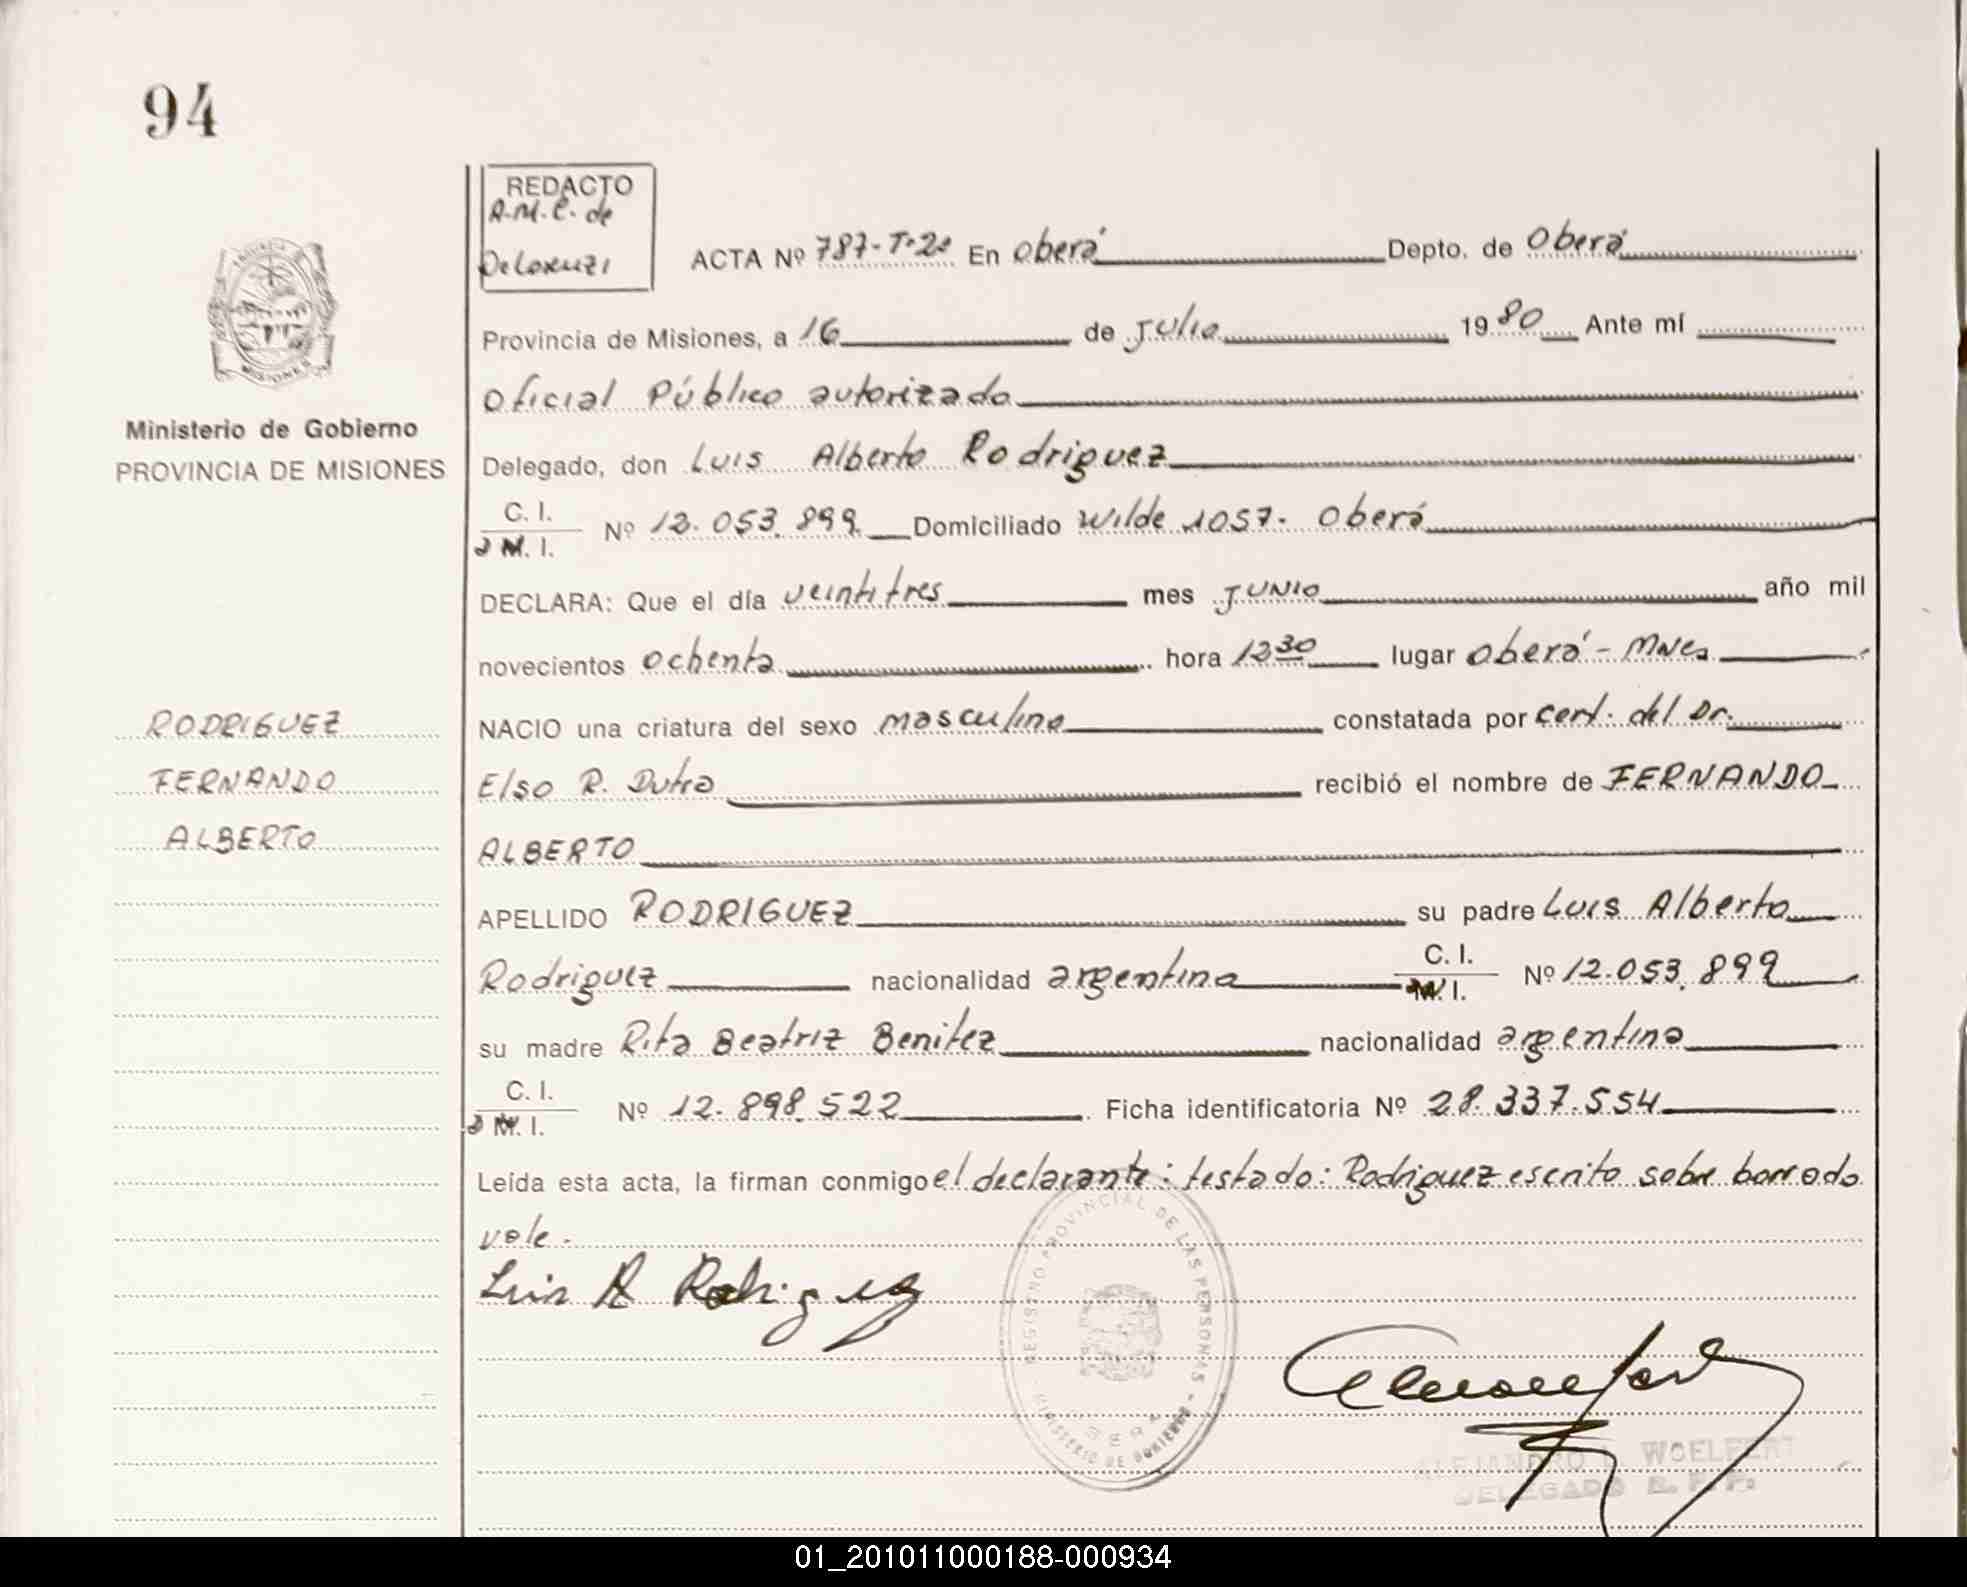 94
REDACTO
A.M.C. de
ACTA Nº 787-Tº2º En Oberá Depto. de Oberá
Provincia de Misiones, a 16 de Julio 1980 Ante mí
Oficial Público autorizado
Ministerio de Gobierno
PROVINCIA DE MISIONES
Delegado, don Luis Alberto Rodriguez
C. I.
M. I. Nº 12.053.899 Domiciliado Wilde 1057- Oberá
DECLARA: Que el día veintitres mes Junio año mil
novecientos ochenta hora 12 30 lugar Oberá - Mnes
RODRIGUEZ
FERNANDO
ALBERTO
NACIO una criatura del sexo masculino constatada por cert. del Dr.
Elso R. Dutra recibió el nombre de FERNANDO
ALBERTO
APELLIDO RODRIGUEZ su padre Luis Alberto
Rodriguez nacionalidad argentina C. I.
M. I. Nº 12.053.899
su madre Rita Beatriz Benitez nacionalidad argentina
C. I.
M. I. Nº 12.898.522 Ficha identificatoria Nº 28.337.554
Leída esta acta, la firman conmigo el declarante: testado: Rodriguez escrito sobre borrado
vale.
Luis A Rodriguez
REGISTRO PROVINCIAL DE LAS PERSONAS - MINISTERIO DE GOBIERNO
ALEJANDRO L. WOELFERT
DELEGADO R. P. P.
01_201011000188-000934